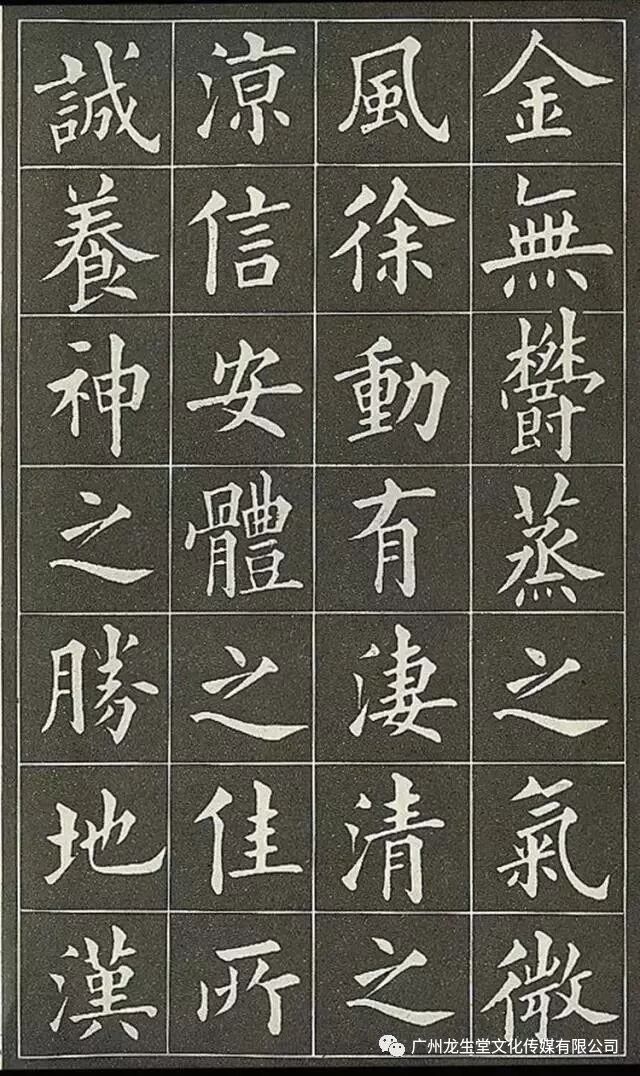 金無鬱蒸之氣微
風徐動有淒清之
涼信安體之佳所
誠養神之勝地漢
广州龙生堂文化传媒有限公司